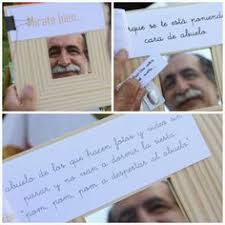 Mírate bien...
rque se te está poniendo
cara de abuelo.
abuelo de los que hacen fotos y video sin
parar y no van a dormir la siesta
"pom, pom, pom a despertar al abuelo"